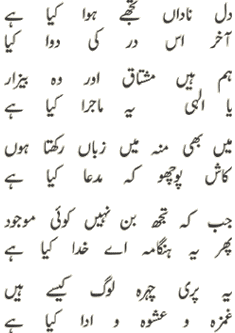 دل ناداں تجھے ہوا کیا ہے
آخر اس در کی دوا کیا
ہم ہیں مشتاق اور وہ بیزار
یا الہی یہ ماجرا کیا ہے
میں بھی منہ میں زباں رکھتا ہوں
کاش پوچھو کہ مدعا کیا ہے
جب کہ تجھ بن نہیں کوئی موجود
پھر یہ ہنگامہ اے خدا کیا ہے
یہ پری چہرہ لوگ کیسے ہیں
غمزہ و عشوہ و ادا کیا ہے